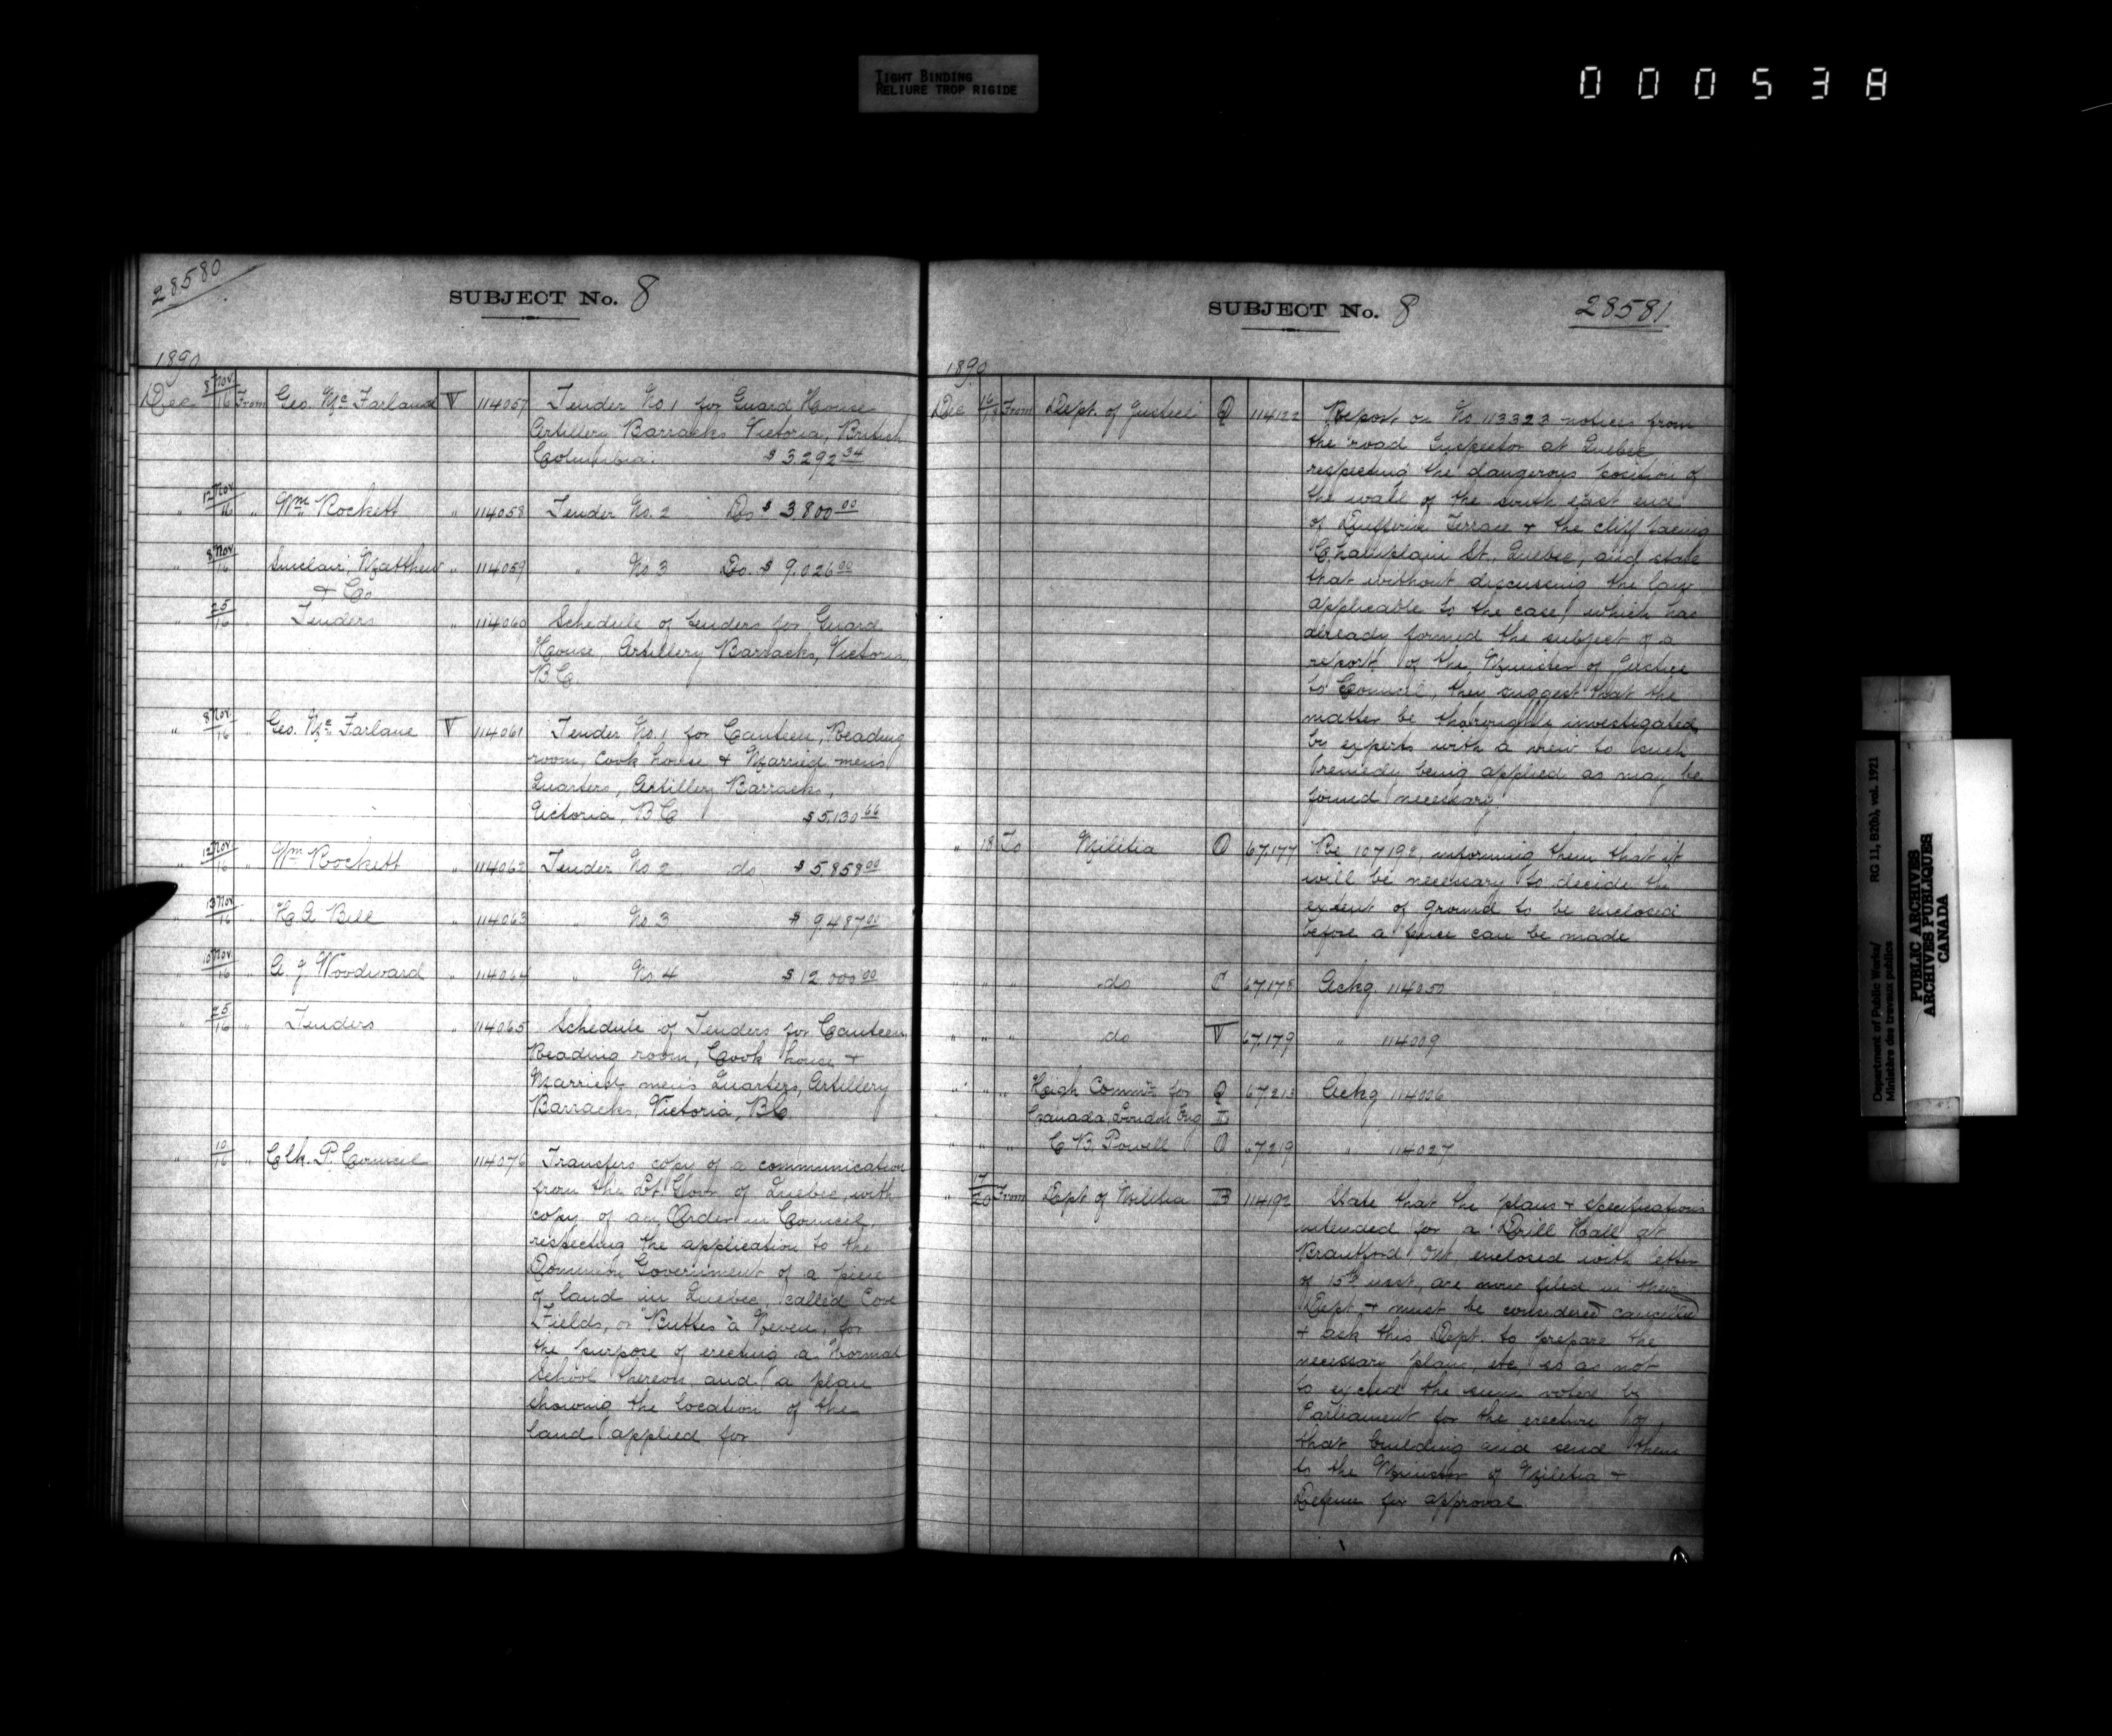 TIGHT BINDING
RELIURE TROP RIGIDE
000538
28580
SUBJECT No. 8
1890
Dec 8 Nov/16 From Geo. Mc Farland V 114057 Tender No 1 for Guard House
Artillery Barracks Victoria, British
Columbia. $3,292.34
" 12 Nov/16 " Wm Rockett " 114058 Tender No. 2 Do $3,800.00
" 8 Nov/16 " Sinclair, Matthew " 114059 " No 3 Do. $9,026.00
& Co
" 25/16 " Tenders " 114060 Schedule of tenders for Guard
House, Artillery Barracks, Victoria,
B.C.
" 8 Nov/16 " Geo. Mc Farlane V 114061 Tender No. 1 for Canteen, Reading
room, Cook house & Married mens
Quarters, Artillery Barracks,
Victoria, B C $5,130.66
" 12 Nov/16 " Wm Rockett " 114062 Tender No 2 do $5,858.00
" 13 Nov/16 " H. A Bell " 114063 " No 3 $9,487.00
" 10 Nov/16 " A. J Woodward " 114064 " No 4 $12,000.00
" 25/16 " Tenders " 114065 Schedule of Tenders for Canteen
Reading room, Cook house &
Married mens Quarters, Artillery
Barracks, Victoria, B.C.
" 10/16 " Clk. P. Council 114076 Transfers copy of a communication
from the Lt Govr of Quebec, with
copy of an Order in Council,
respecting the application to the
Dominion Government of a piece
of land in Quebec, called Cove
Fields, or "Buttes à Neveu", for
the purpose of erecting a Normal
School thereon and a plan
showing the location of the
land applied for
SUBJECT No. 8 28581
1890
Dec From Dept. of Justice Q 114122 Report on No 113323 notices from
the road Inspector at Quebec
respecting the dangerous position of
the wall of the south east end
of Dufferin Terrace & the cliff facing
Champlain St., Quebec, and state
that without discussing the law
applicable to the case, which has
already formed the subject of a
report of the Minister of Justice
to Council, they suggest that the
matter be thoroughly investigated
by experts with a view to such
remedy being applied as may be
found necessary.
" 18 To Militia O 67,177 Re 107192, informing them that it
will be necessary to decide the
extent of ground to be enclosed
before a fence can be made
" " " do C 67,178 Ackg. 114050
" " " do V 67,179 " 114009
" " " High Commr. for Q 67,213 Ackg 114006
Canada, London Eng
" " " C B. Powell O 67,219 " 114027
" 17/20 From Dept of Militia B 114192 State that the plans & specifications
intended for a Drill Hall at
Brantford Ont enclosed with letter
of 15th inst, are now filed in their
Dept. & must be considered cancelled
& ask this Dept. to prepare the
necessary plans, etc, so as not
to exceed the sum voted by
Parliament for the erection of
that building and send them
to the Minister of Militia &
Defence for approval.
Department of Public Works/ RG 11, B2(b), vol. 1921
Ministère des travaux publics
PUBLIC ARCHIVES
ARCHIVES PUBLIQUES
CANADA